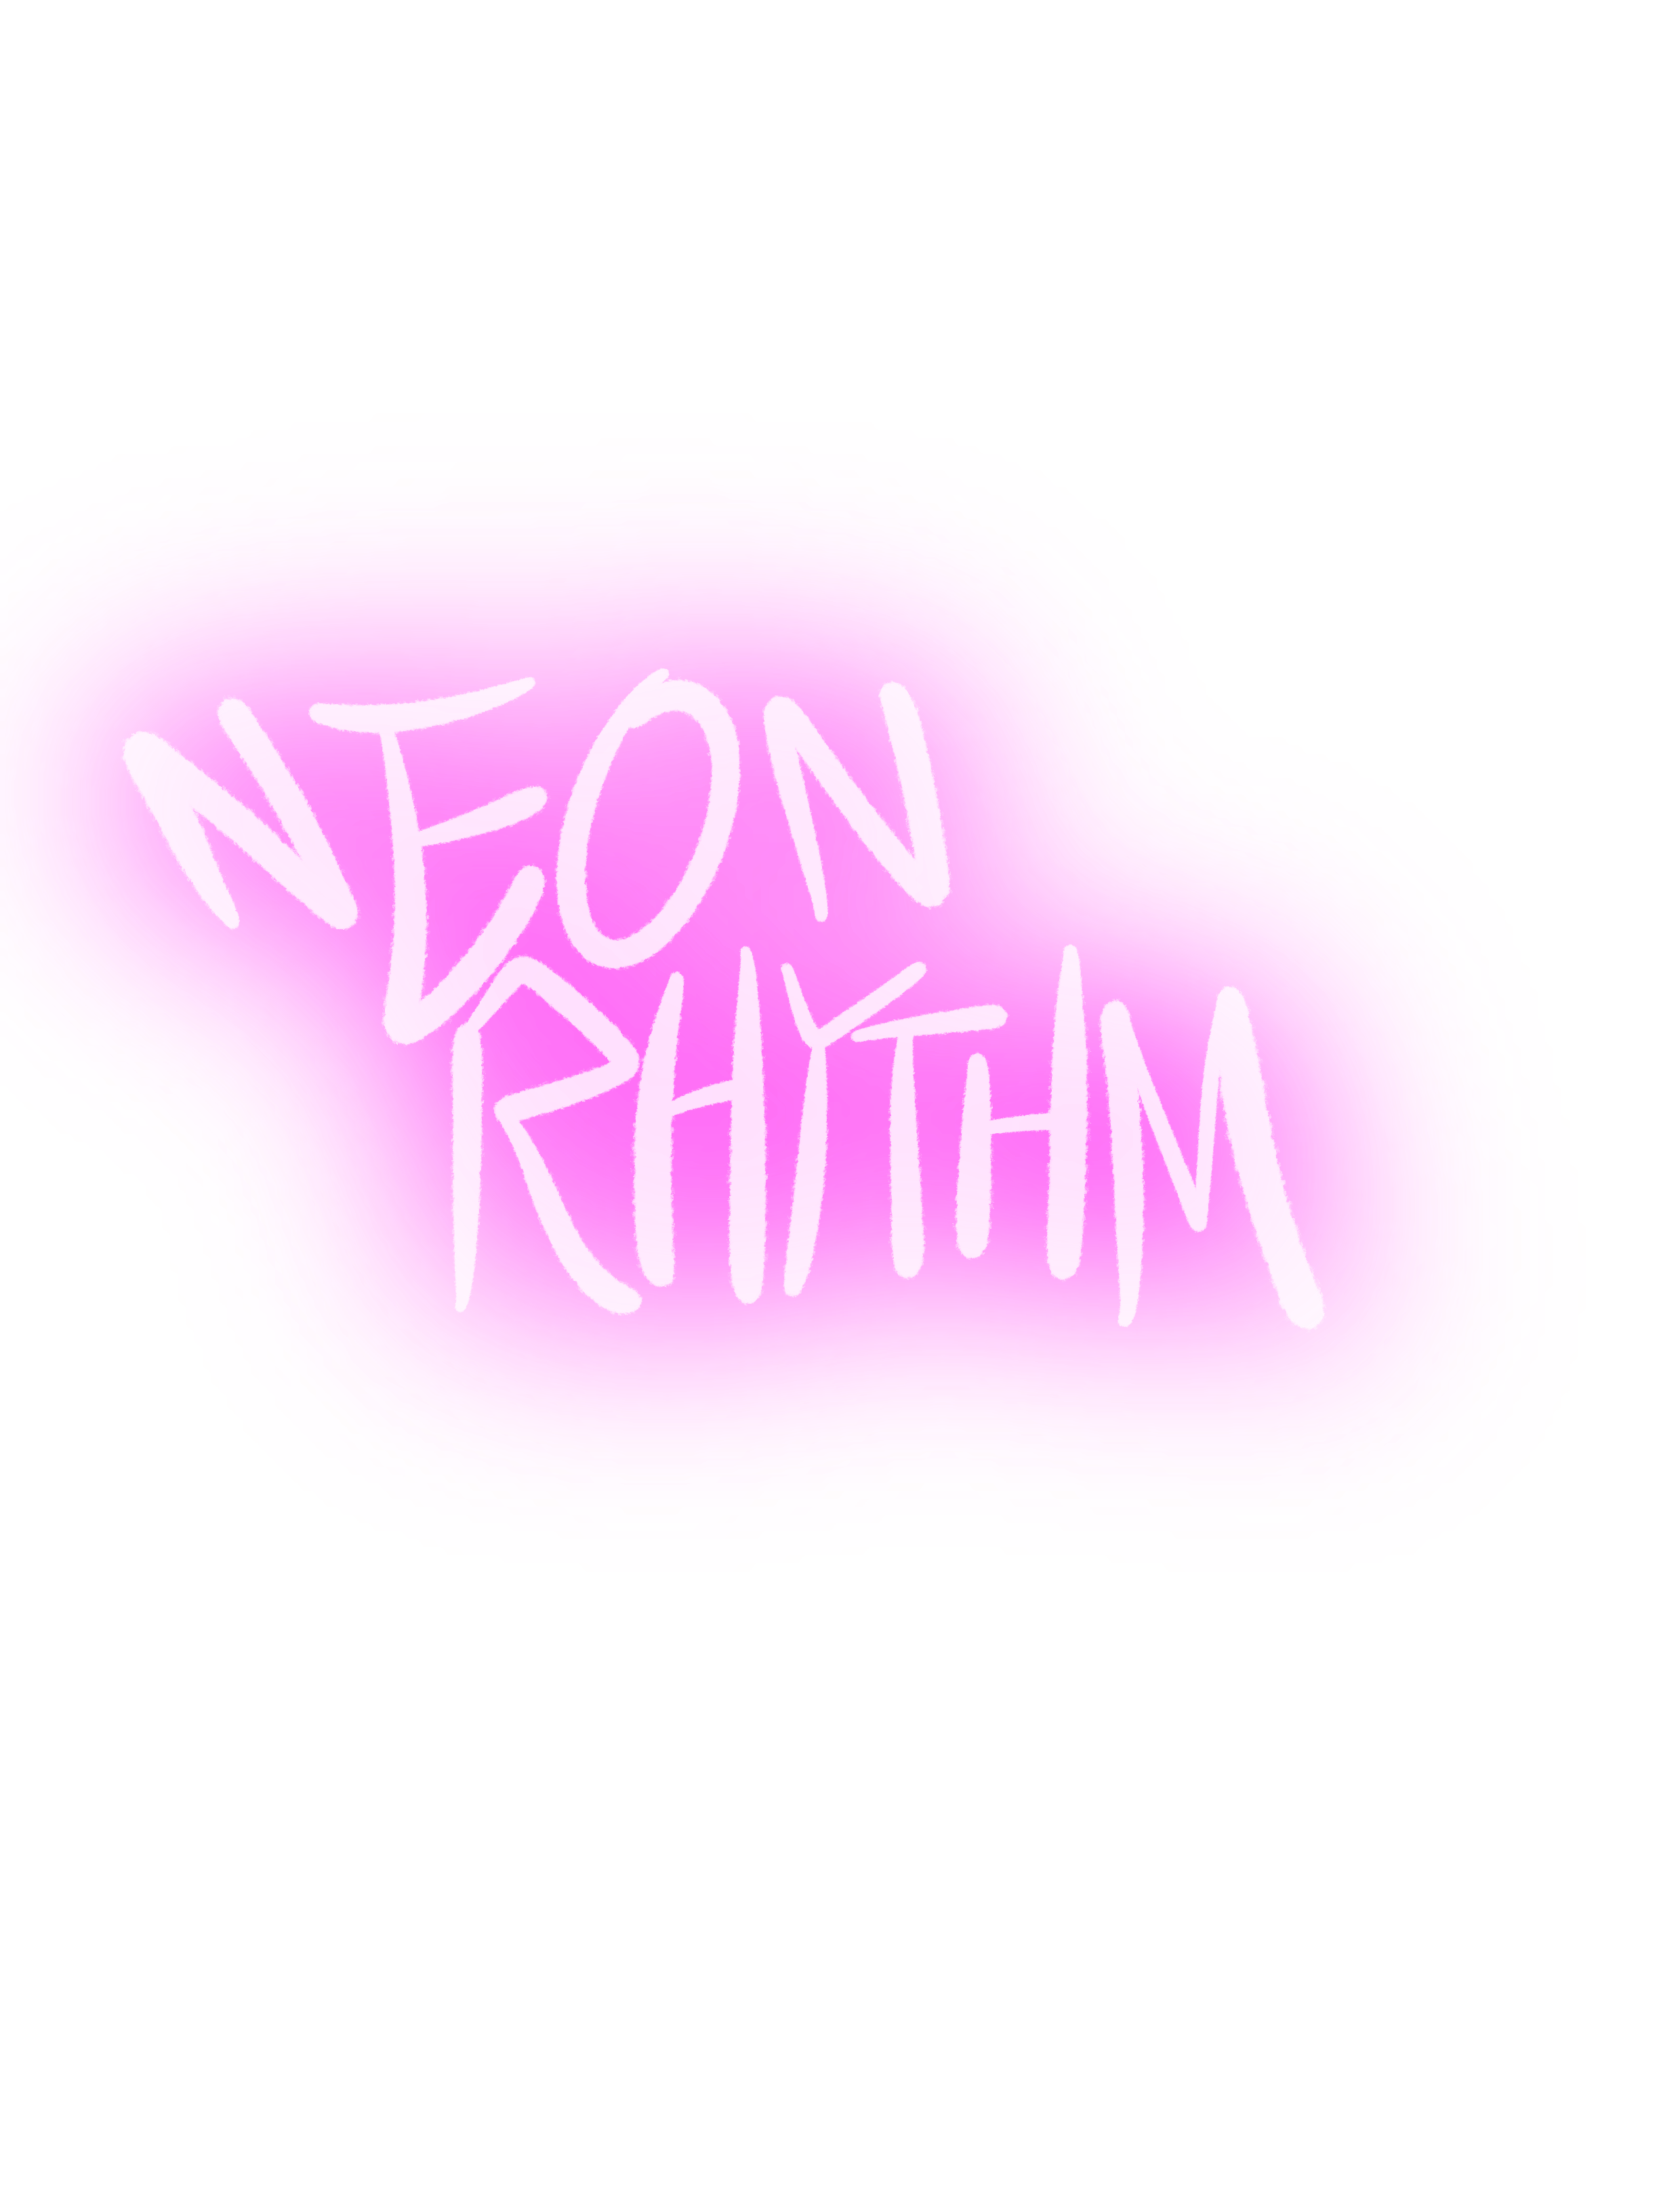 NEON
RHYTHM